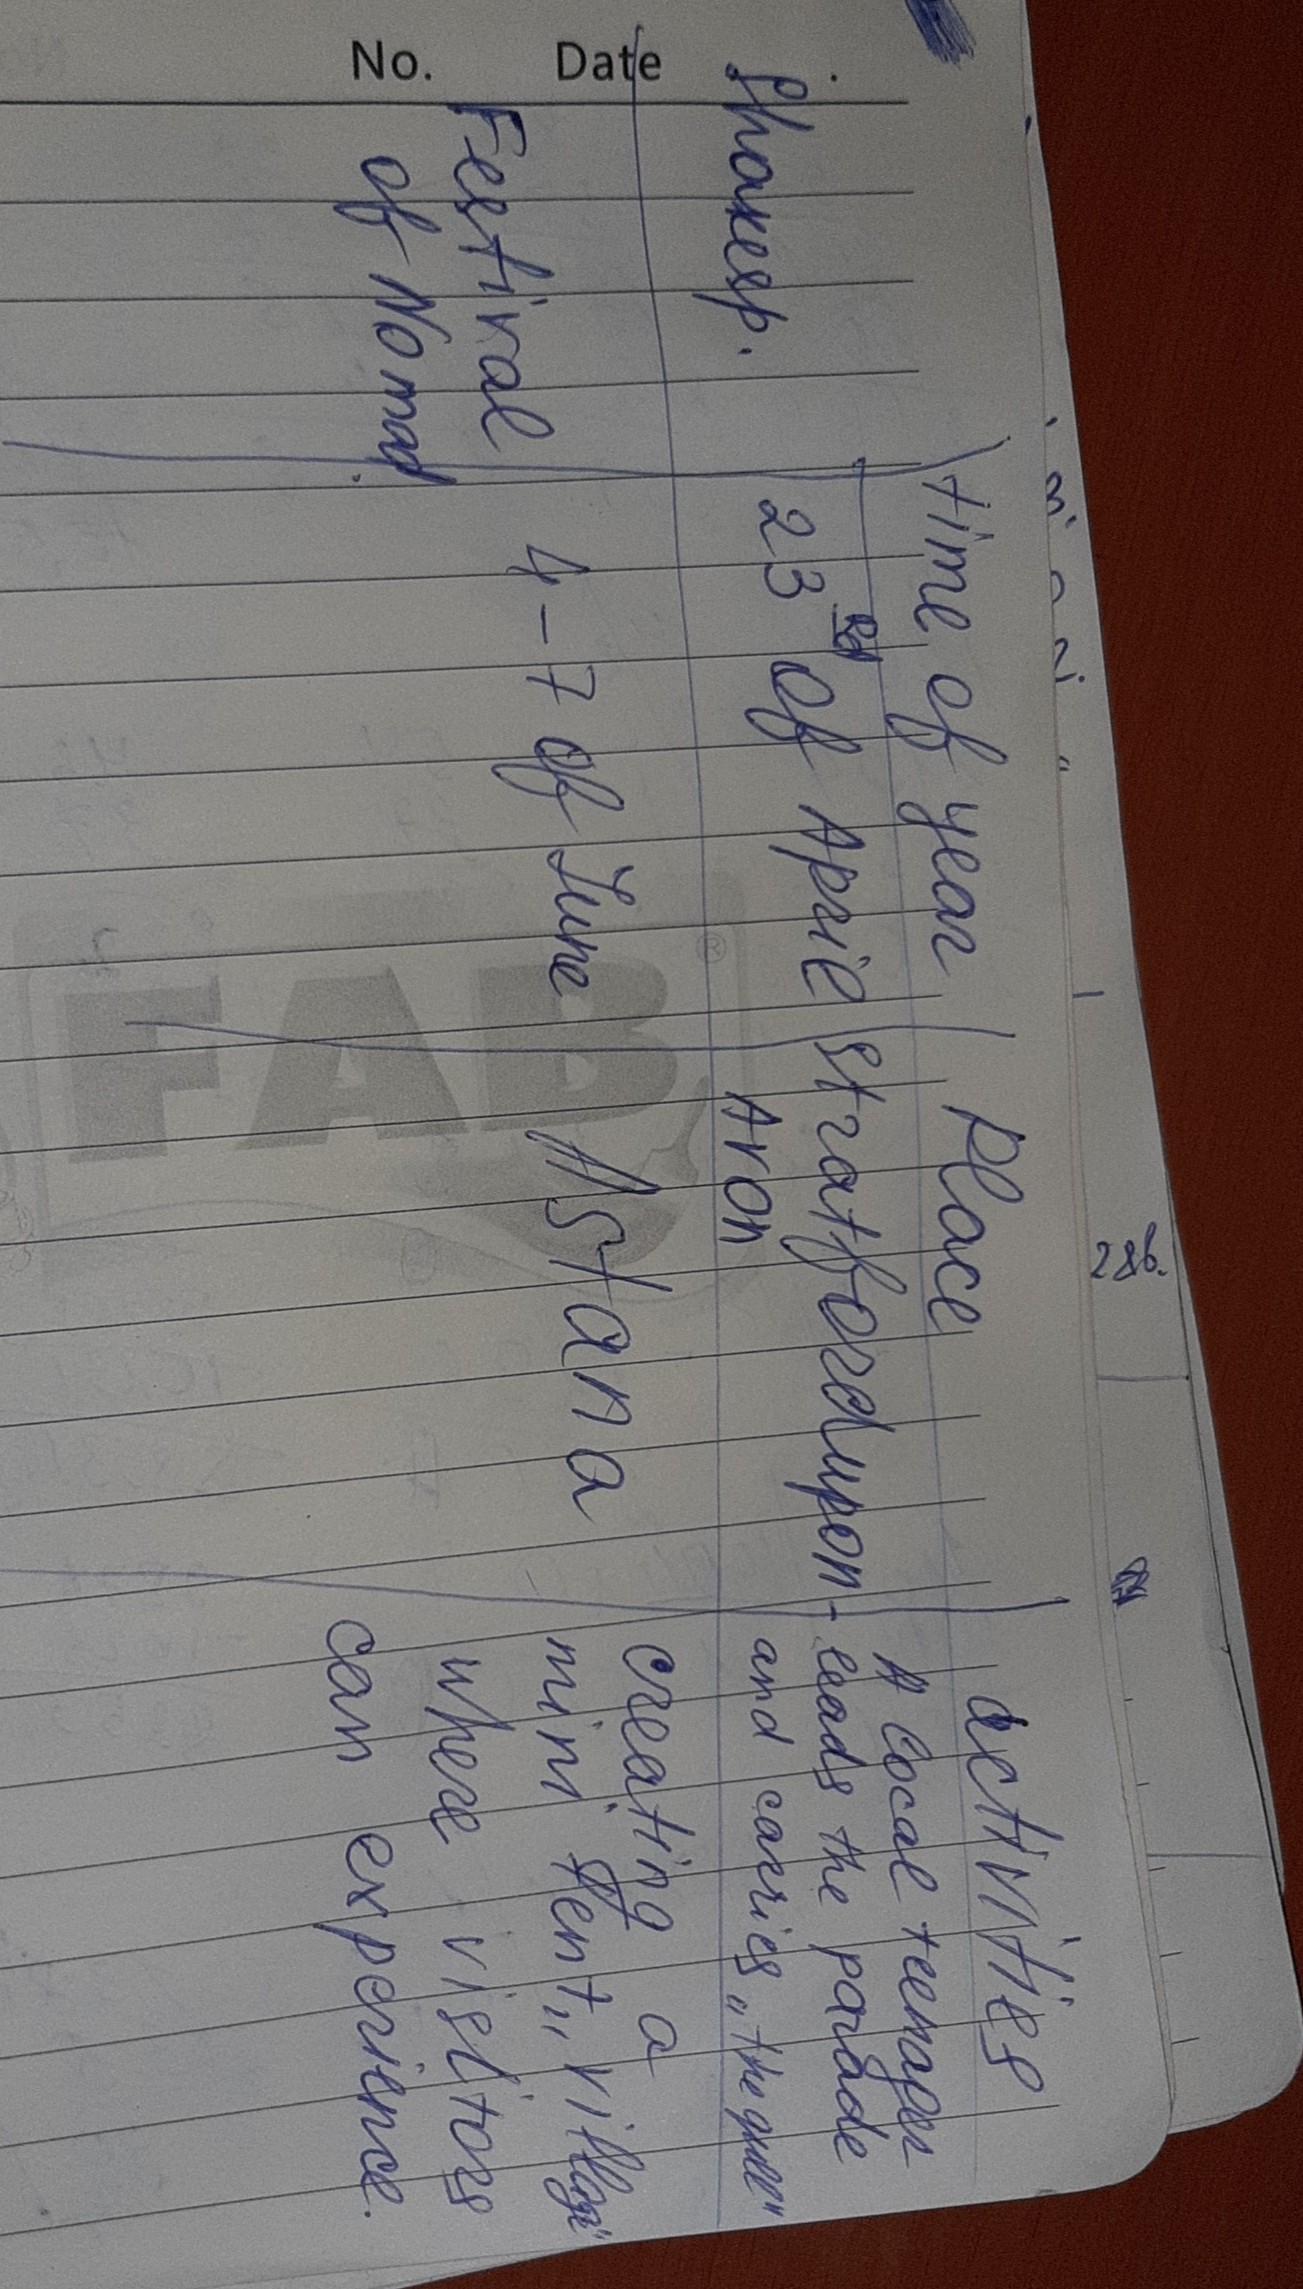 No. Date
time of year Place activities
Shakesp. 23 rd of April Stratfordupon- A local teenager
Avon leads the parade
and carries „the quill"
Festival 4-7 of June Astana creating a
of Nomad. mini tent „village"
where visitors
can experience.
286.
FAB
®